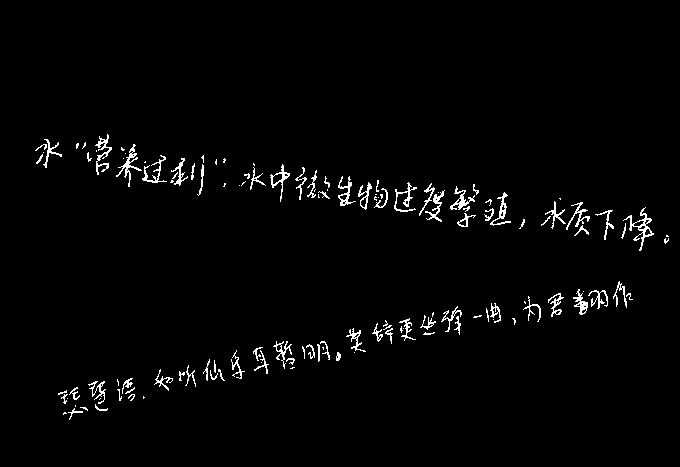 水“营养过剩”,水中微生物过度繁殖,水质下降。
琵琶语,如听仙乐耳暂明。莫辞更坐弹一曲,为君翻作